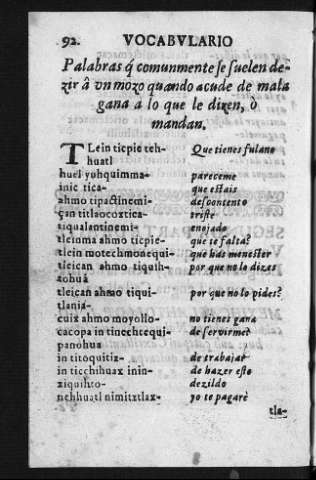 92. VOCABVLARIO
Palabras q̃ comunmente se suelen de-
zir â vn mozo quando acude de mala
gana a lo que le dizen, ò
mandan.
TLein ticpie teh- Que tienes fulano
huatl
huel yuhquimma- pareceme
inic tica- que estais
ahmo tipactinemi- descontento
çan titlaocoxtica- triste
tiqualantinemi- enojado
tleinma ahmo ticpie- que te falta?
tlein motechmonequi- que has menester
tleican ahmo tiquih- por que no lo dizes
tohua
tleican ahmo tiqui- por que no lo pides?
tlania-
cuix ahmo moyollo- no tienes gana
cacopa in tinechtequi- de servirme?
panohua
in titoquitiz- de trabajar
in ticchihuaz inin- de hazer esto
xiquihto- dezildo
nehhuatl nimitztlax- yo te pagarè
tla-